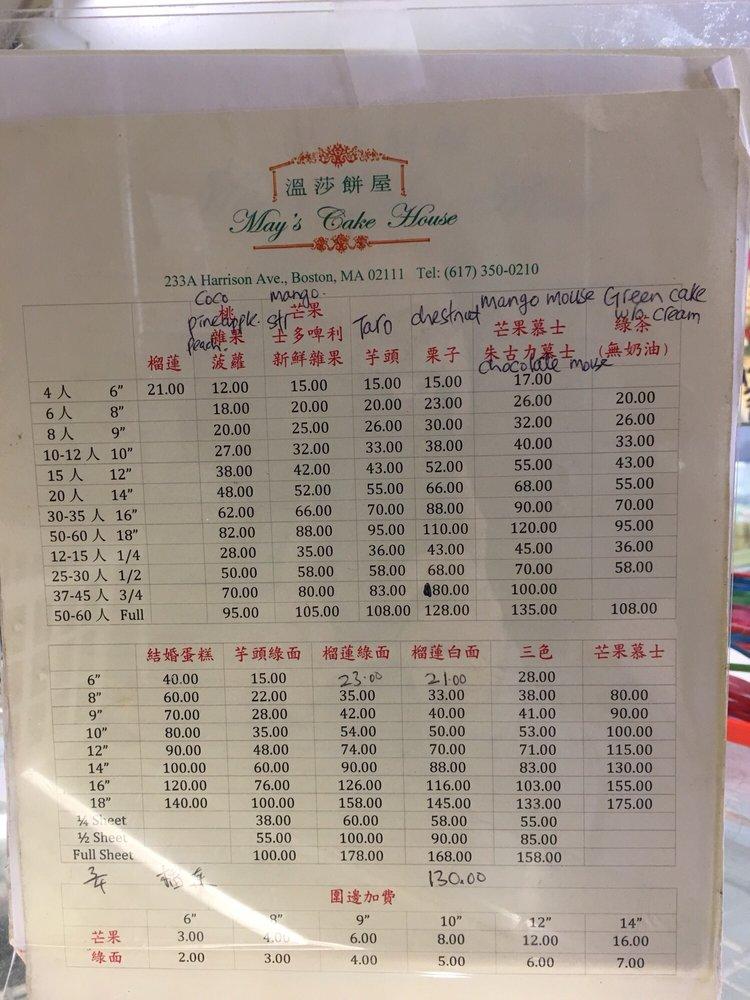 溫莎餅屋
May's Cake House
233A Harrison Ave., Boston, MA 02111 Tel: (617) 350-0210
Coco mango. mango mouse Green cake
pineapple. str Taro chestnut w/o cream
peach. chocolate mouse
桃 芒果 芒果慕士 綠茶
雜果 士多啤利 朱古力慕士 (無奶油)
榴蓮 菠蘿 新鮮雜果 芋頭 栗子
4 人 6" 21.00 12.00 15.00 15.00 15.00 17.00
6 人 8" 18.00 20.00 20.00 23.00 26.00 20.00
8 人 9" 20.00 25.00 26.00 30.00 32.00 26.00
10-12 人 10" 27.00 32.00 33.00 38.00 40.00 33.00
15 人 12" 38.00 42.00 43.00 52.00 55.00 43.00
20 人 14" 48.00 52.00 55.00 66.00 68.00 55.00
30-35 人 16" 62.00 66.00 70.00 88.00 90.00 70.00
50-60 人 18" 82.00 88.00 95.00 110.00 120.00 95.00
12-15 人 1/4 28.00 35.00 36.00 43.00 45.00 36.00
25-30 人 1/2 50.00 58.00 58.00 68.00 70.00 58.00
37-45 人 3/4 70.00 80.00 83.00 80.00 100.00
50-60 人 Full 95.00 105.00 108.00 128.00 135.00 108.00
結婚蛋糕 芋頭綠面 榴蓮綠面 榴蓮白面 三色 芒果慕士
6" 40.00 15.00 23.00 21.00 28.00
8" 60.00 22.00 35.00 33.00 38.00 80.00
9" 70.00 28.00 42.00 40.00 41.00 90.00
10" 80.00 35.00 54.00 50.00 53.00 100.00
12" 90.00 48.00 74.00 70.00 71.00 115.00
14" 100.00 60.00 90.00 88.00 83.00 130.00
16" 120.00 76.00 126.00 116.00 103.00 155.00
18" 140.00 100.00 158.00 145.00 133.00 175.00
¼ Sheet 38.00 60.00 58.00 55.00
½ Sheet 55.00 100.00 90.00 85.00
Full Sheet 100.00 178.00 168.00 158.00
130.00
圍邊加費
6" 8" 9" 10" 12" 14"
芒果 3.00 4.00 6.00 8.00 12.00 16.00
綠面 2.00 3.00 4.00 5.00 6.00 7.00